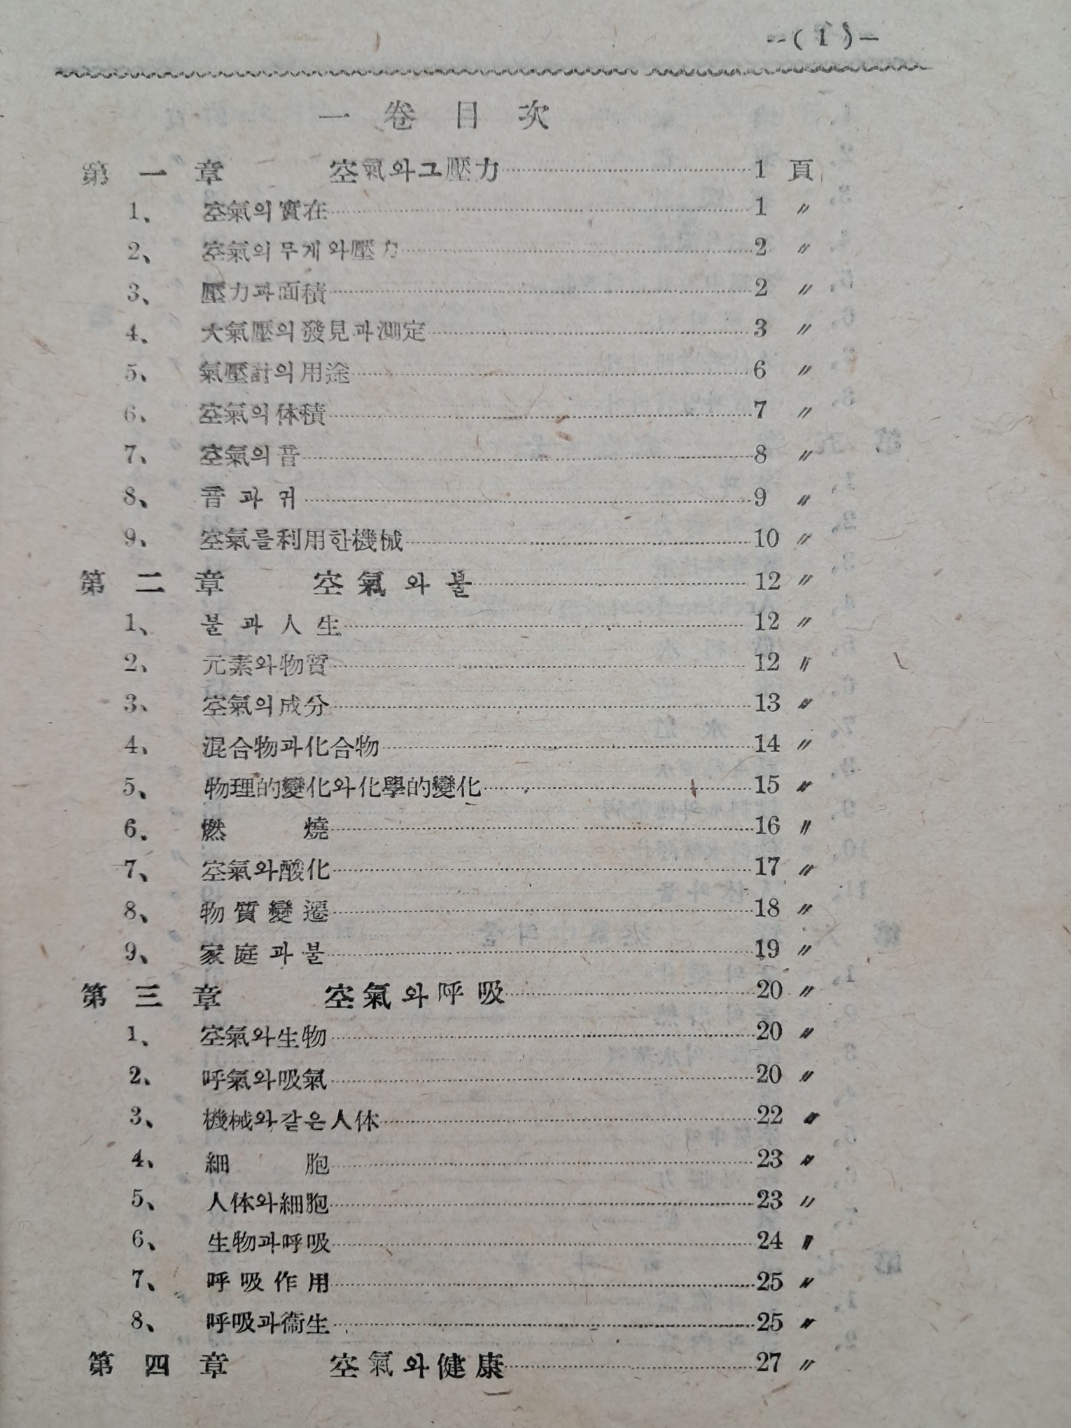 --( 1 )--
一卷目次
第一章 空氣와그壓力 1 頁
1、 空氣의實在 1 〃
2、 空氣의무게와壓力 2 〃
3、 壓力과面積 2 〃
4、 大氣壓의發見과測定 3 〃
5、 氣壓計의用途 6 〃
6、 空氣의体積 7 〃
7、 空氣의音 8 〃
8、 音과귀 9 〃
9、 空氣를利用한機械 10 〃
第二章 空氣와불 12 〃
1、 불과人生 12 〃
2、 元素와物質 12 〃
3、 空氣의成分 13 〃
4、 混合物과化合物 14 〃
5、 物理的變化와化學的變化 15 〃
6. 燃燒 16 〃
7、 空氣와酸化 17 〃
8、 物質變遷 18 〃
9、 家庭과불 19 〃
第三章 空氣와呼吸 20 〃
1、 空氣와生物 20 〃
2、 呼氣와吸氣 20 〃
3、 機械와같은人体 22 〃
4、 細胞 23 〃
5、 人体와細胞 23 〃
6、 生物과呼吸 24 〃
7、 呼吸作用 25 〃
8、 呼吸과衞生 25 〃
第四章 空氣와健康 27 〃